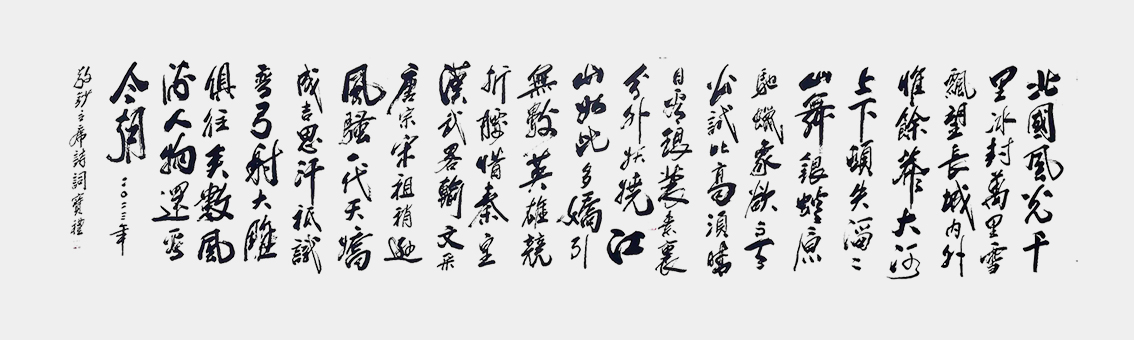 北國風光千
里冰封萬里雪
飄望長城內外
惟餘莽大河
上下頓失滔〻
山舞銀蛇原
馳蠟象欲与天
公試比高須晴
日看銀裝素裹
分外妖嬈江
山如此多嬌引
無數英雄競
折腰惜秦皇
漢武畧輸文采
唐宗宋祖稍遜
風騷一代天嬌
成吉思汗祇識
彎弓射大雕
俱往矣數風
流人物還看
今朝
二〇二三年
敬抄主席詩詞寶禮